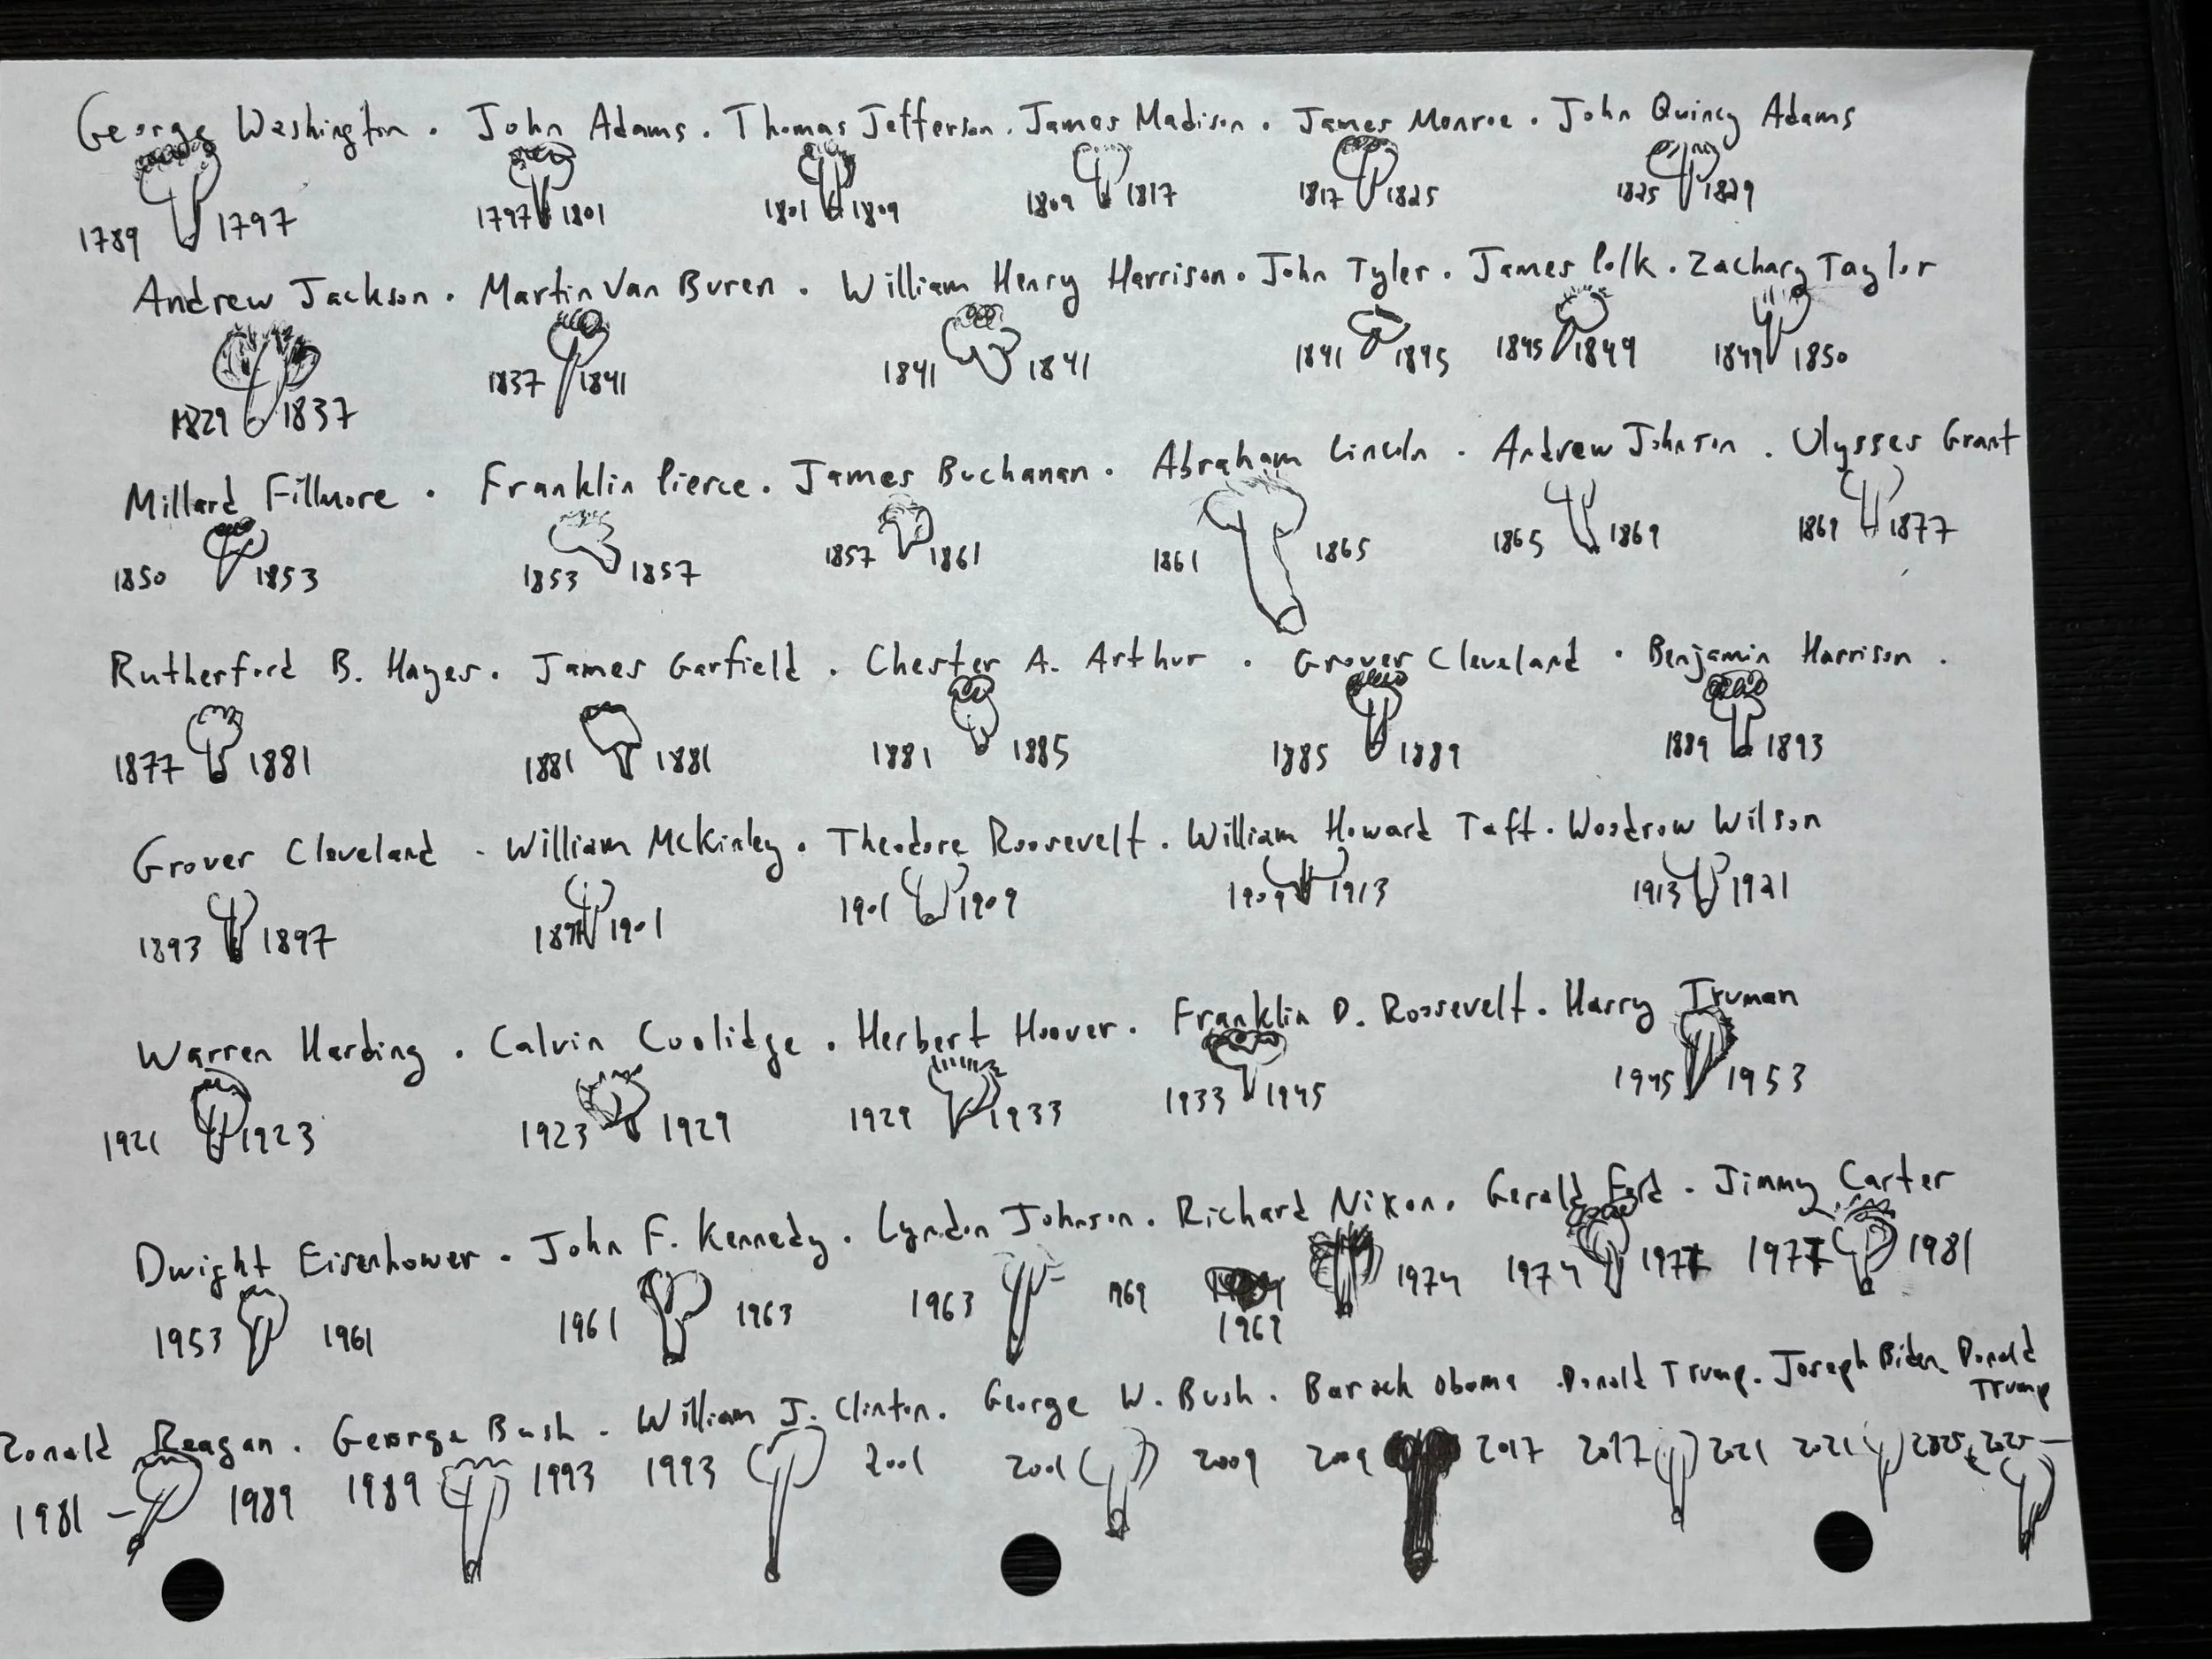 George Washington . John Adams . Thomas Jefferson . James Madison . James Monroe . John Quincy Adams
1789 1797 1797 1801 1801 1809 1809 1817 1817 1825 1825 1829
Andrew Jackson . Martin Van Buren . William Henry Harrison . John Tyler . James Polk . Zachary Taylor
1829 1837 1837 1841 1841 1841 1841 1845 1845 1849 1849 1850
Millard Fillmore . Franklin Pierce . James Buchanan . Abraham Lincoln . Andrew Johnson . Ulysses Grant
1850 1853 1853 1857 1857 1861 1861 1865 1865 1869 1869 1877
Rutherford B. Hayes . James Garfield . Chester A. Arthur . Grover Cleveland . Benjamin Harrison .
1877 1881 1881 1881 1881 1885 1885 1889 1889 1893
Grover Cleveland . William McKinley . Theodore Roosevelt . William Howard Taft . Woodrow Wilson
1893 1897 1897 1901 1901 1909 1909 1913 1913 1921
Warren Harding . Calvin Coolidge . Herbert Hoover . Franklin D. Roosevelt . Harry Truman
1921 1923 1923 1929 1929 1933 1933 1945 1945 1953
Dwight Eisenhower . John F. Kennedy . Lyndon Johnson . Richard Nixon . Gerald Ford . Jimmy Carter
1953 1961 1961 1963 1963 1969 1974 1974 1977 1977 1981
1969
Ronald Reagan . George Bush . William J. Clinton . George W. Bush . Barack Obama . Donald Trump . Joseph Biden . Donald
Trump
1981 - 1989 1989 1993 1993 2001 2001 2009 2009 2017 2017 2021 2021 2025 2025 -